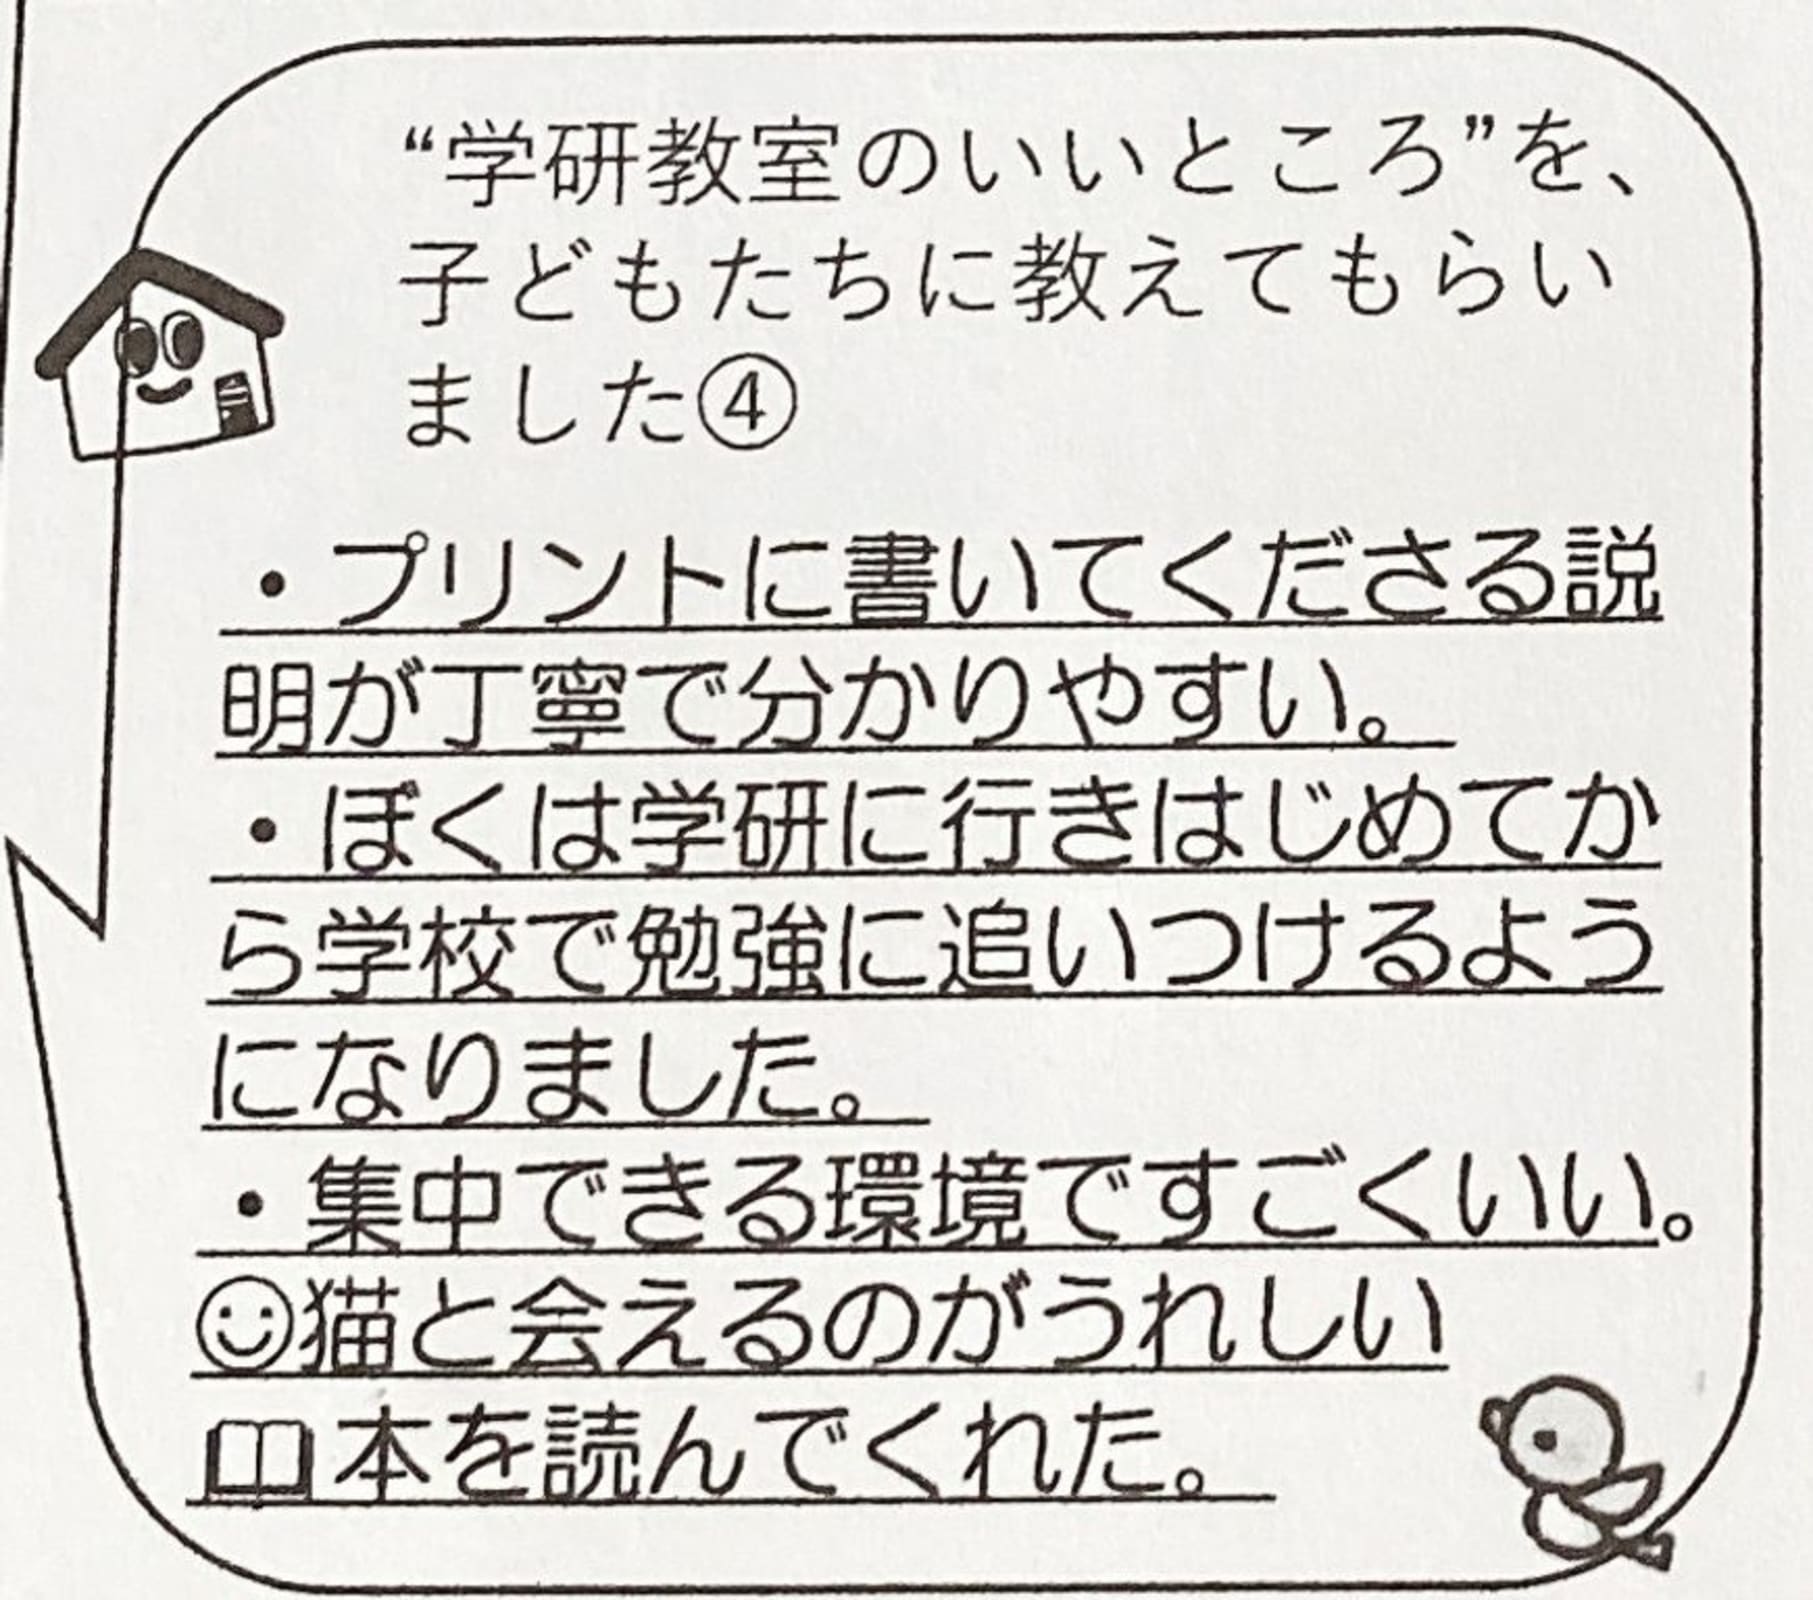 “学研教室のいいところ”を、
子どもたちに教えてもらい
ました④
・プリントに書いてくださる説
明が丁寧で分かりやすい。
・ぼくは学研に行きはじめてか
ら学校で勉強に追いつけるよう
になりました。
・集中できる環境ですごくいい。
☺猫と会えるのがうれしい
🕮本を読んでくれた。